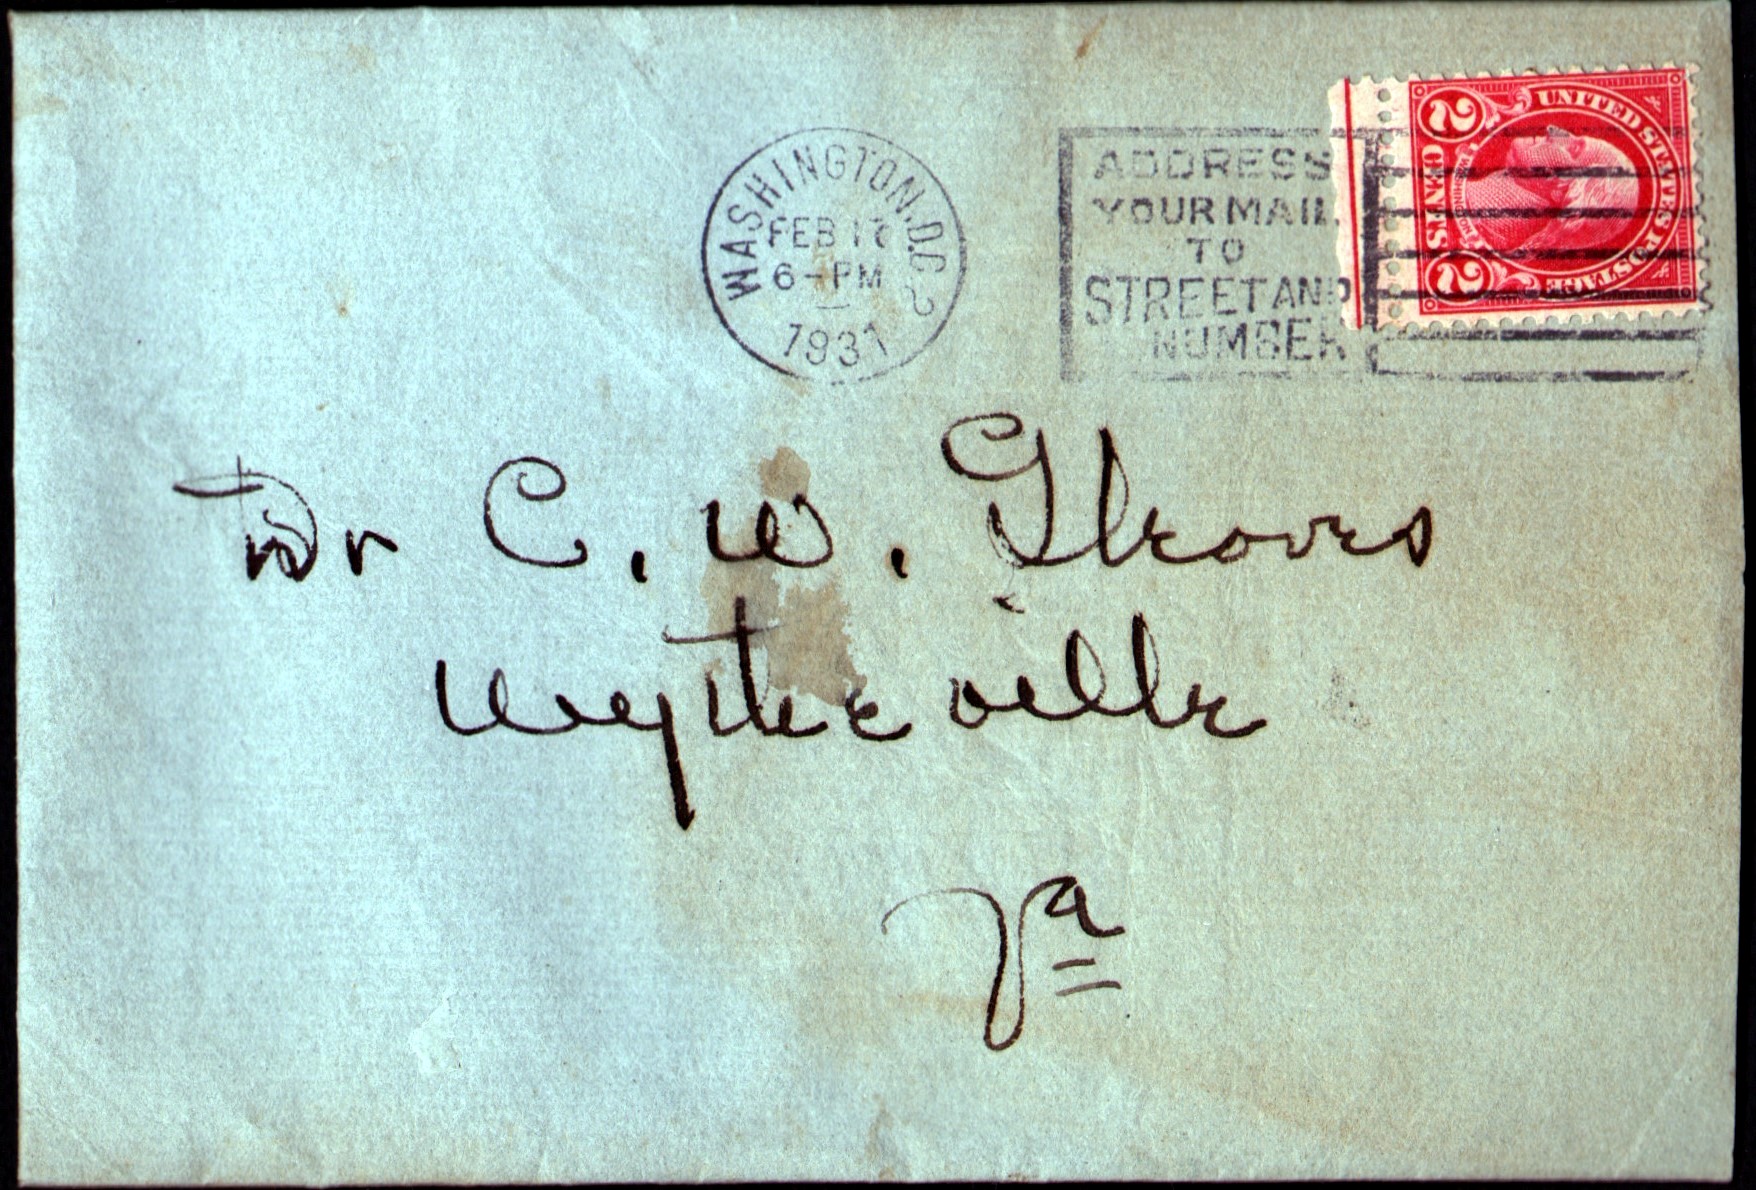 WASHINGTON, D.C. 2
FEB 17
6-PM
1931
ADDRESS
YOUR MAIL
TO
STREET AND
NUMBER
UNITED STATES POSTAGE
WASHINGTON
2 CENTS 2
Dr C. W. Gleaves
Wytheville
Va